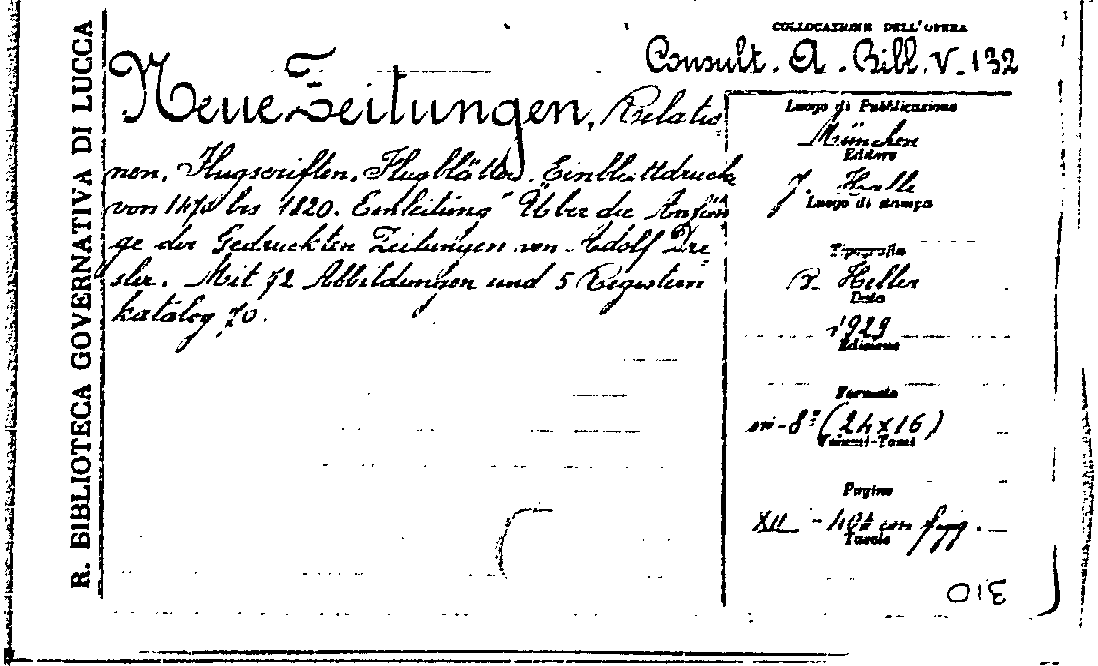 R. BIBLIOTECA GOVERNATIVA DI LUCCA
COLLOCAZIONE DELL'OPERA
Consult. A. Bill. V. 132
Neue Zeitungen, Relatio
nen, Flugscriften, Flugblätter, Einblattdrucke
von 1470 bis 1820. Einleitung "Über die Anfän
ge der Gedruckten Zeitungen von Adolf Dre
sler. Mit 72 Abbildungen und 5 Registern
katalog 70.
Luogo di Pubblicazione
München
Editore
J. Halle
Luogo di stampa
Tipografia
Heller
Data
1929
Edizione
Formato
in-8° (24x16)
Volumi-Tomi
Pagine
XII - 404 con figg.
Tavole
310